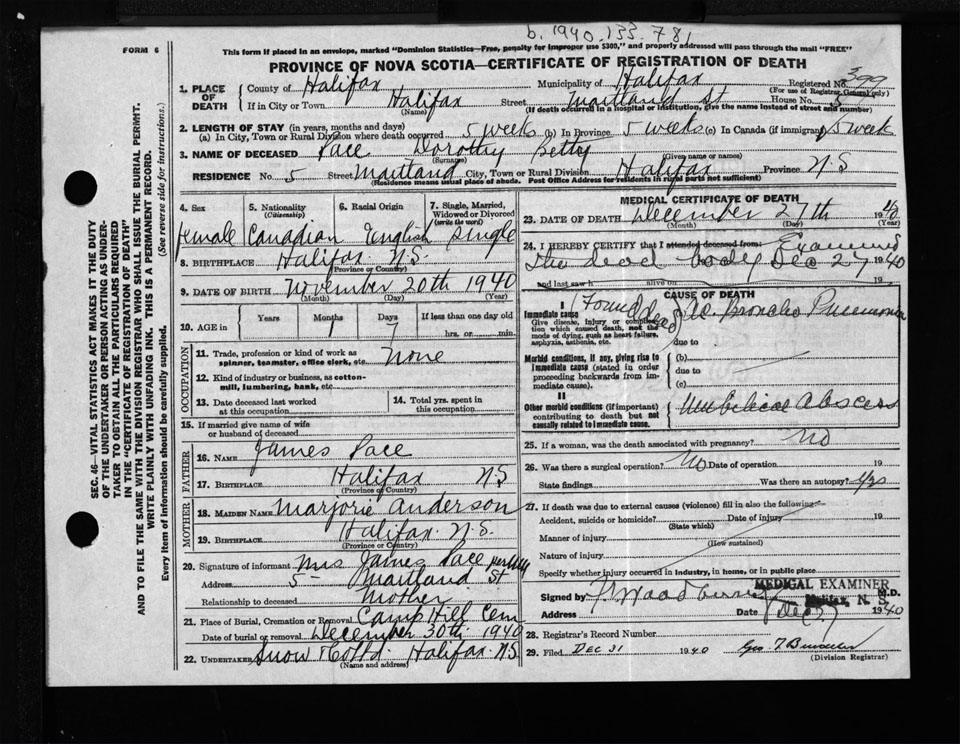 b. 1940-133-781
FORM 6
This form if placed in an envelope, marked "Dominion Statistics—Free, penalty for improper use $300," and properly addressed will pass through the mail "FREE"
PROVINCE OF NOVA SCOTIA—CERTIFICATE OF REGISTRATION OF DEATH
1. PLACE OF DEATH
County of Halifax Municipality of Halifax Registered No. 399
(For use of Registrar General only)
If in City or Town Halifax Street Maitland St House No. 5
(Name) (If death occurred in a hospital or institution, give the name instead of street and number)
2. LENGTH OF STAY (in years, months and days)
(a) In City, Town or Rural Division where death occurred 5 weeks (b) In Province 5 weeks (c) In Canada (if immigrant) 5 weeks
3. NAME OF DECEASED Pace Dorothy Betty
(Surname) (Given name or names)
RESIDENCE No. 5 Street Maitland City, Town or Rural Division Halifax Province N.S
(Residence means usual place of abode. Post Office Address for residents in rural parts not sufficient)
4. Sex 5. Nationality (Citizenship) 6. Racial Origin 7. Single, Married, Widowed or Divorced (write the word)
female Canadian English Single
8. BIRTHPLACE Halifax N.S.
(Province or Country)
9. DATE OF BIRTH November 20th 1940
(Month) (Day) (Year)
10. AGE in Years Months Days If less than one day old
1 7 hrs. or min.
OCCUPATION
11. Trade, profession or kind of work as spinner, teamster, office clerk, etc. None
12. Kind of industry or business, as cotton-mill, lumbering, bank, etc.
13. Date deceased last worked at this occupation
14. Total yrs. spent in this occupation
15. If married give name of wife or husband of deceased
FATHER
16. NAME James Pace
17. BIRTHPLACE Halifax N.S
(Province or Country)
MOTHER
18. MAIDEN NAME Marjorie Anderson
19. BIRTHPLACE Halifax N.S.
(Province or Country)
20. Signature of informant Mrs James Pace
Address 5 Maitland St
Relationship to deceased Mother
21. Place of Burial, Cremation or Removal Camp Hill Cem
Date of burial or removal December 30th 1940
22. UNDERTAKER Snow & Co Ltd. Halifax N.S
(Name and address)
MEDICAL CERTIFICATE OF DEATH
23. DATE OF DEATH December 27th 1940
(Month) (Day) (Year)
24. I HEREBY CERTIFY that I attended deceased from: Examined
the dead body Dec 27 1940
and last saw h alive on 19
CAUSE OF DEATH
I
Immediate cause (Found dead) Ac. Broncho Pneumonia
Give disease, injury or complication which caused death, not the mode of dying, such as heart failure, asphyxia, asthenia, etc.
due to
Morbid conditions, if any, giving rise to immediate cause (stated in order proceeding backwards from immediate cause).
(b)
due to
(c)
II
Other morbid conditions (if important) contributing to death but not causally related to immediate cause.
Umbilical Abscess
25. If a woman, was the death associated with pregnancy? No
26. Was there a surgical operation? No Date of operation 19
State findings Was there an autopsy? yes
27. If death was due to external causes (violence) fill in also the following:
Accident, suicide or homicide? Date of injury 19
(State which)
Manner of injury
(How sustained)
Nature of injury
Specify whether injury occurred in industry, in home, or in public place
MEDICAL EXAMINER
Halifax, N. S.
Signed by M.D.
Address Date Dec 27 1940
28. Registrar's Record Number
29. Filed DEC 31 1940 Geo. T.
(Division Registrar)
SEC. 46—VITAL STATISTICS ACT MAKES IT THE DUTY
OF THE UNDERTAKER OR PERSON ACTING AS UNDER-
TAKER TO OBTAIN ALL THE PARTICULARS REQUIRED
IN THE "CERTIFICATE OF REGISTRATION OF DEATH"
AND TO FILE THE SAME WITH THE DIVISION REGISTRAR WHO SHALL ISSUE THE BURIAL PERMIT.
WRITE PLAINLY WITH UNFADING INK. THIS IS A PERMANENT RECORD.
Every item of information should be carefully supplied. (See reverse side for instructions.)